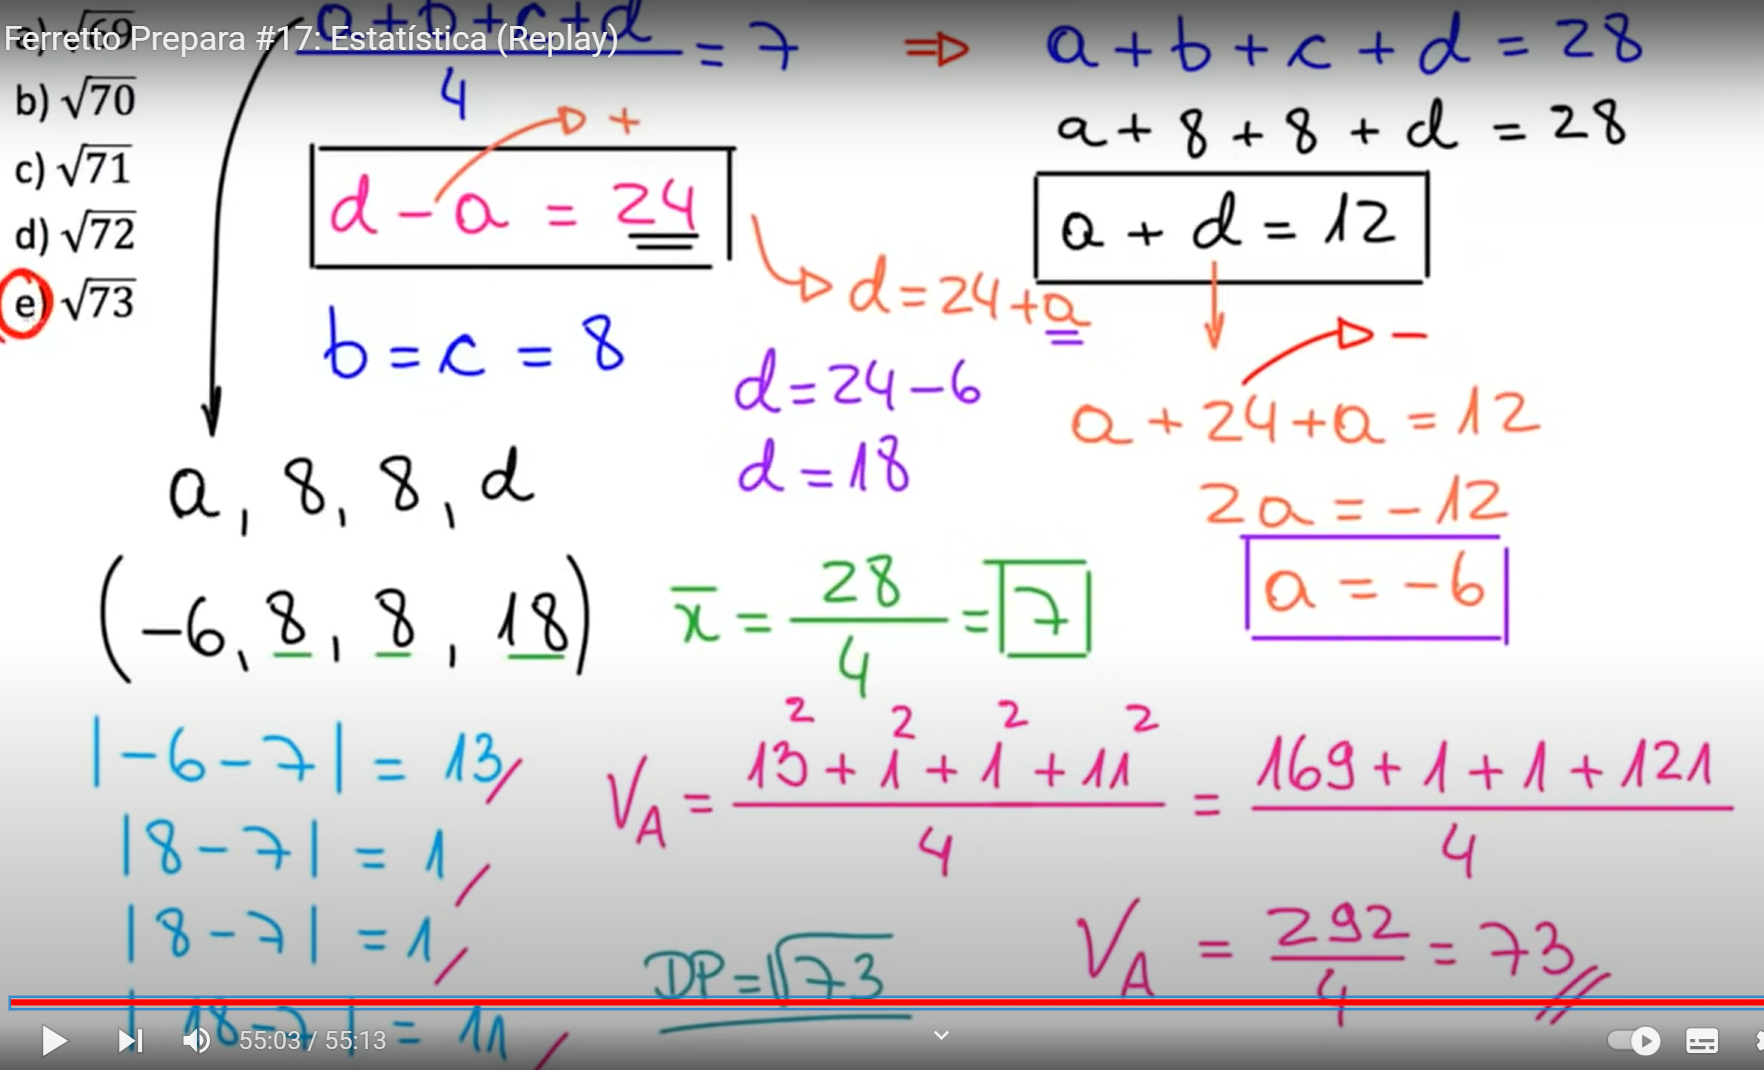 Ferretto Prepara #17: Estatística (Replay)
a) √69
b) √70
c) √71
d) √72
e) √73
a+b+c+d/4 = 7 ⇒ a+b+c+d = 28
a+8+8+d = 28
+
d-a = 24
a+d = 12
b=c=8
d=24+a
d=24-6
d=18
-
a+24+a=12
2a=-12
a=-6
a, 8, 8, d
(-6, 8, 8, 18)
x̅ = 28/4 = 7
|-6-7| = 13
|8-7| = 1
|8-7| = 1
|18-7| = 11
V_A = 13²+1²+1²+11²/4 = 169+1+1+121/4
V_A = 292/4 = 73
DP=√73
55:03 / 55:13